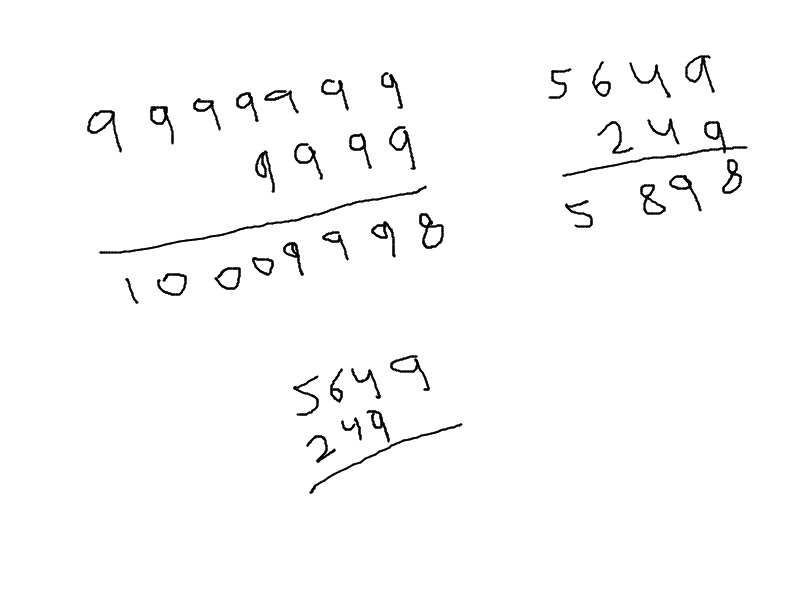 9999999
9999
10009998
5649
249
5898
5649
249